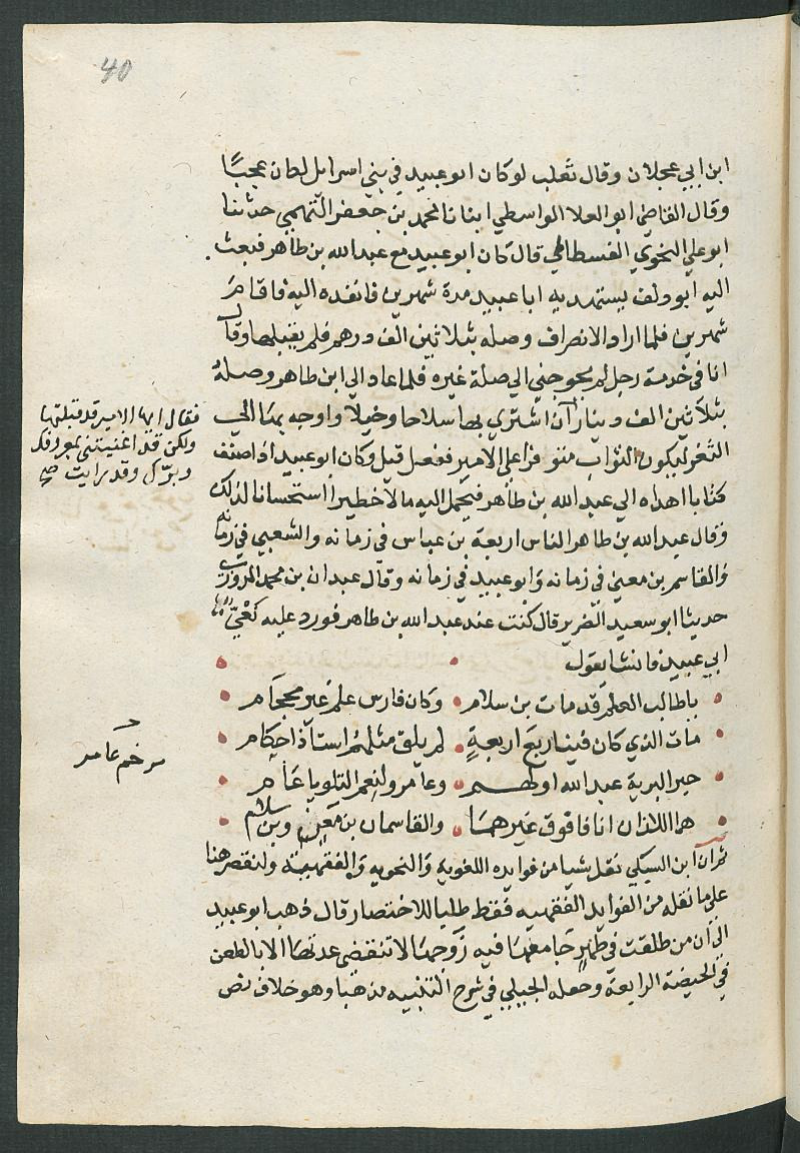 40
ابن ابي عجلان وقال ثعلب لو كان ابو عبيد في بني اسرايل لكان عجبًا
وقال القاضي ابو العلا الواسطي انبانا محمد بن جعفر التميمي حدثنا
ابو علي النحوي الفسطاطي قال كان ابو عبيد مع عبد الله بن طاهر فبعث
اليه ابو دلف يستهديه ابا عبيد مدة شهرين فانفده اليه فاقام
شهرين فلما اراد الانصراف وصله بثلاثين الف درهم فلم يقبلها وقال
انا في خدمة رجل لم يحوجني الي صلة غيره فلما عاد الي ابن طاهر وصله
بثلاثين الف دينار ان اشتري بها سلاحا وخيلا واوجه بها الي
الثغر ليكون الثواب متوفرا علي الامير ففعل قيل وكان ابو عبيد اذا صنف
كتابا اهداه الي عبد الله بن طاهر فيحمل اليه مالا خطيرا استحسانا لذلك
وقال عبد الله بن طاهر الناس اربعة بن عباس في زمانه والشعبي في زمانه
والقاسم بن معين في زمانه وابو عبيد في زمانه وقال عبدان بن محمد المروزي
حدثنا ابو سعيد الضرير قال كنت عند عبد الله بن طاهر فورد عليه نعي
ابي عبيد فانشا يقول
ياطالب العلم قد مات بن سلام وكان فارس علم غير محجام
مات الذي كان فينا ربع اربعةٍ لم يلق مثلهم استاذ احكام
خير البرية عبد الله اولهم وعامر ولنعم التلو يا عام
هما اللذان انافا فوق غيرهما والقاسمان بن معن وبن سلام
ثم ان ابن السبكي نقل شيا من فوايده اللغوية والنحوية والفقهية ولنقصر هنا
علي ما نقله من الفوايد الفقهيه فقط طلبا للاختصار قال ذهب ابو عبيد
الي ان من طلقت في طهرٍ جامعها فيه زوجها لا تنقضي عدتها الا بالطعن
في الحيضة الرابعة وجعله الجيلي في شرح التنبيه مذهبا وهو خلاف نص
فقال ايها الامير قد قبلتها
ولكن قد اغنيتني بمعروفك
وبرك وقد رايت صح
مرخم عامر